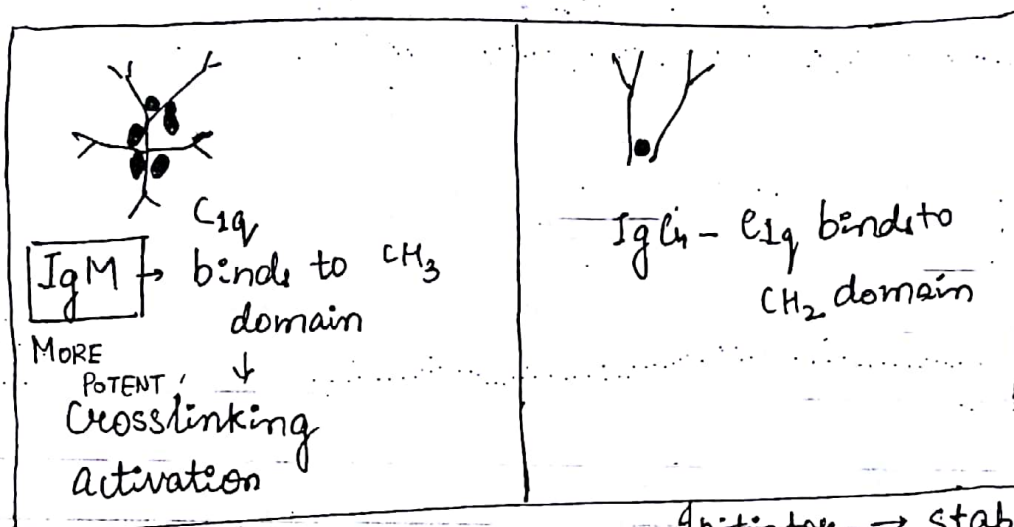 C1q
IgM → binds to CH3
domain
MORE
POTENT ↓
Crosslinking
activation
IgG - C1q binds to
CH2 domain
Initiator → stab